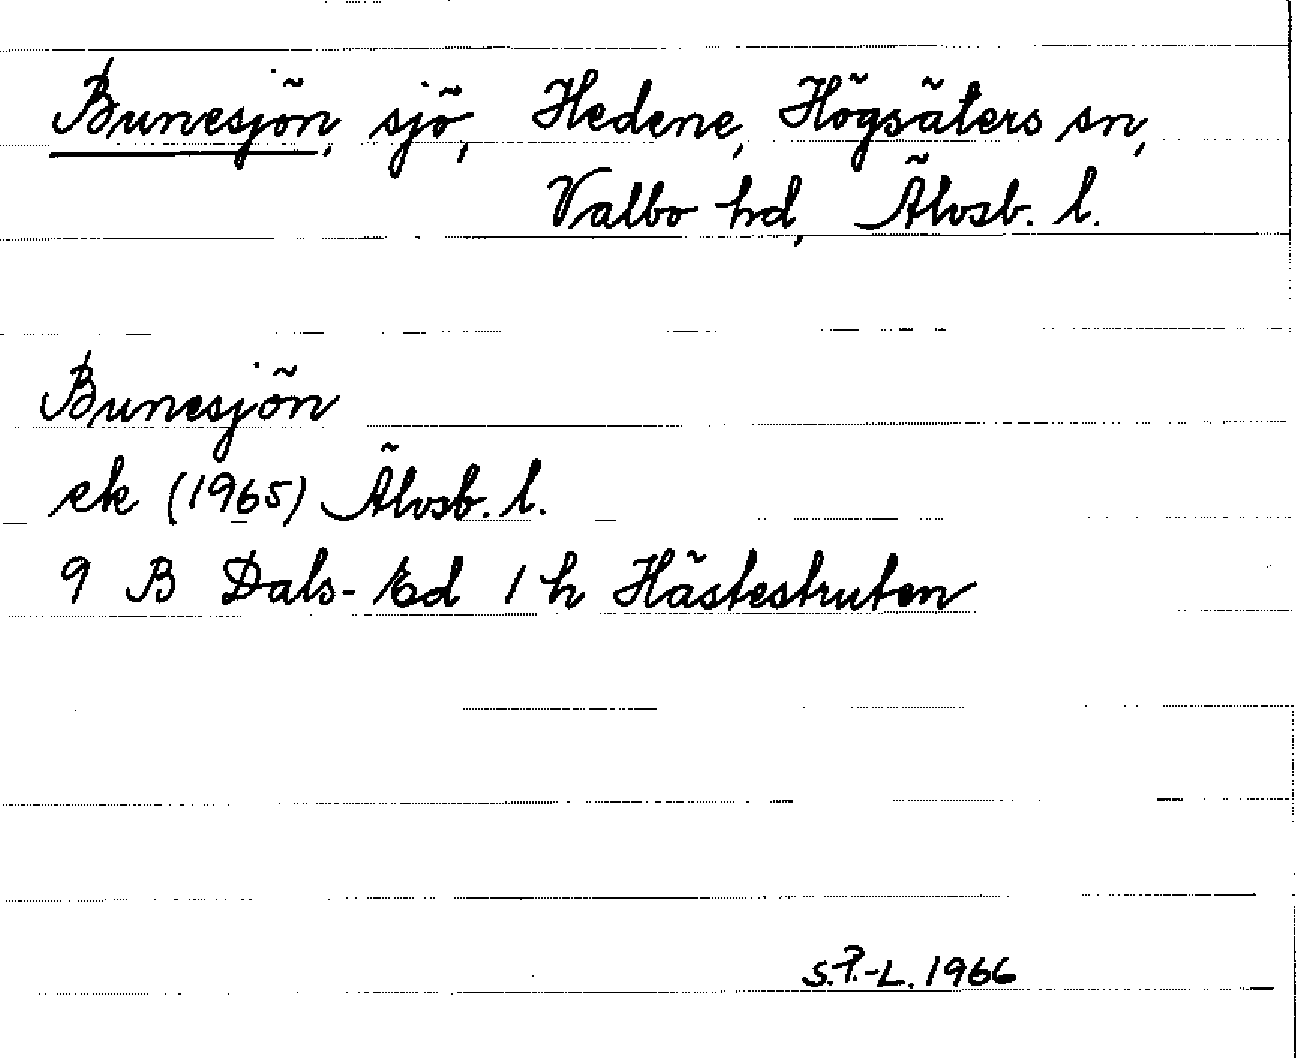 Bunesjön, sjö, Hedene, Högsäters sn,
Valbo hd, Älvsb. l.
Bunesjön
ek (1965) Älvsb. l.
9 B Dals-Ed 1 h Hästestruten
S.P.-L. 1966